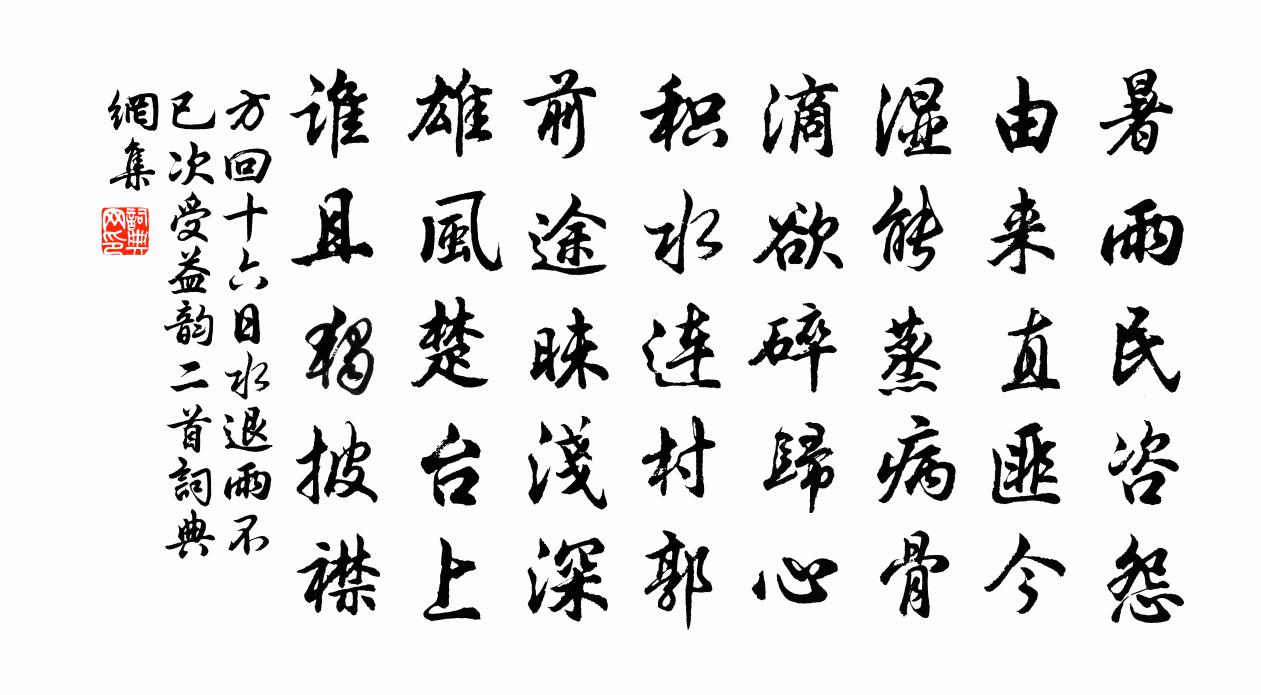 暑雨民咨怨
由来直匪今
湿能蒸病骨
滴欲碎歸心
积水连村郭
前途昧淺深
雄風楚台上
谁且独披襟
方回十六日水退雨不
已次受益韵二首詞典
網集
詞典网印